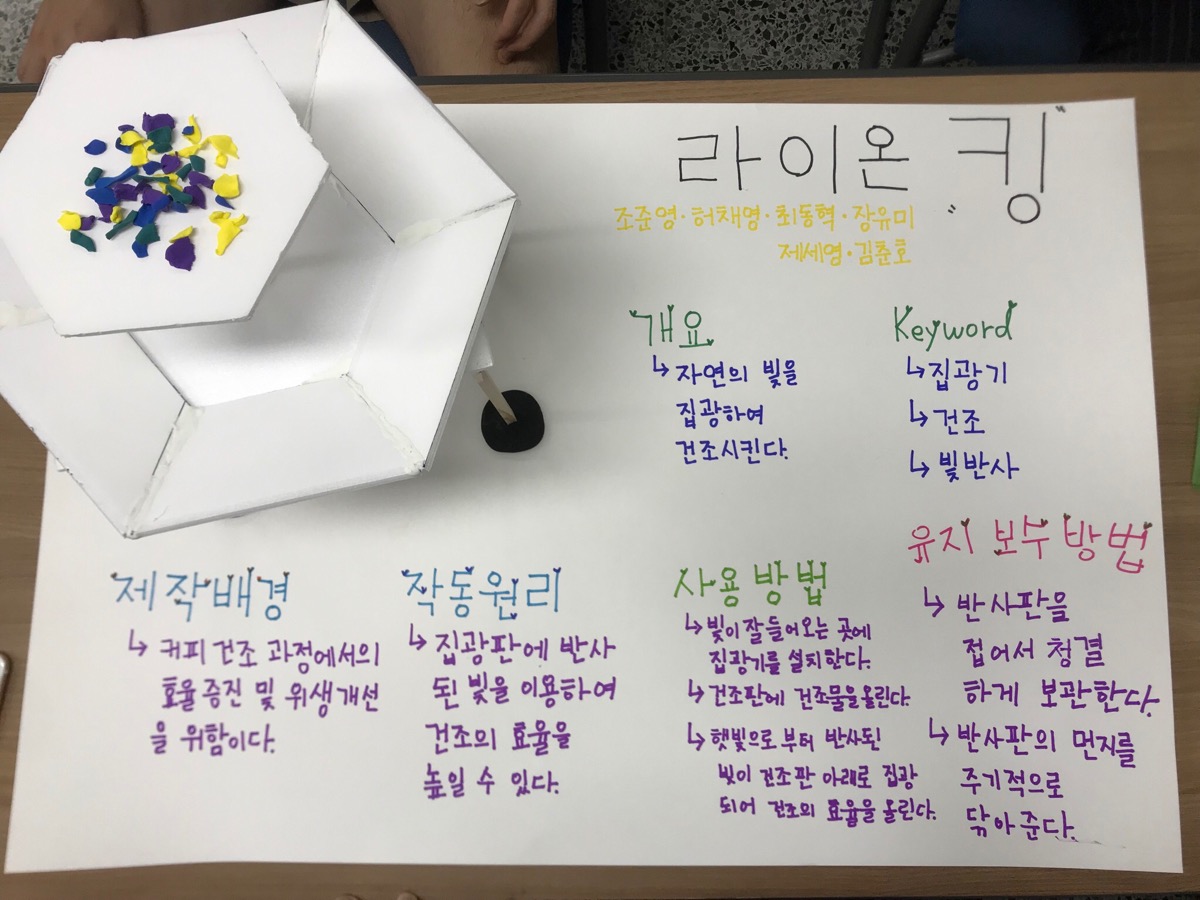 라이온 "킹"
조준영·허채영·최동혁·장유미
제세영·김춘호
개요
↳ 자연의 빛을
집광하여
건조시킨다.
Keyword
↳ 집광기
↳ 건조
↳ 빛반사
제작배경
↳ 커피 건조 과정에서의
효율증진 및 위생개선
을 위함이다.
작동원리
↳ 집광판에 반사
된 빛을 이용하여
건조의 효율을
높일 수 있다.
사용방법
↳ 빛이 잘 들어오는 곳에
집광기를 설치한다.
↳ 건조판에 건조물을 올린다.
↳ 햇빛으로 부터 반사된
빛이 건조판 아래로 집광
되어 건조의 효율을 올린다.
유지 보수 방법
↳ 반사판을
접어서 청결
하게 보관한다.
↳ 반사판의 먼지를
주기적으로
닦아준다.